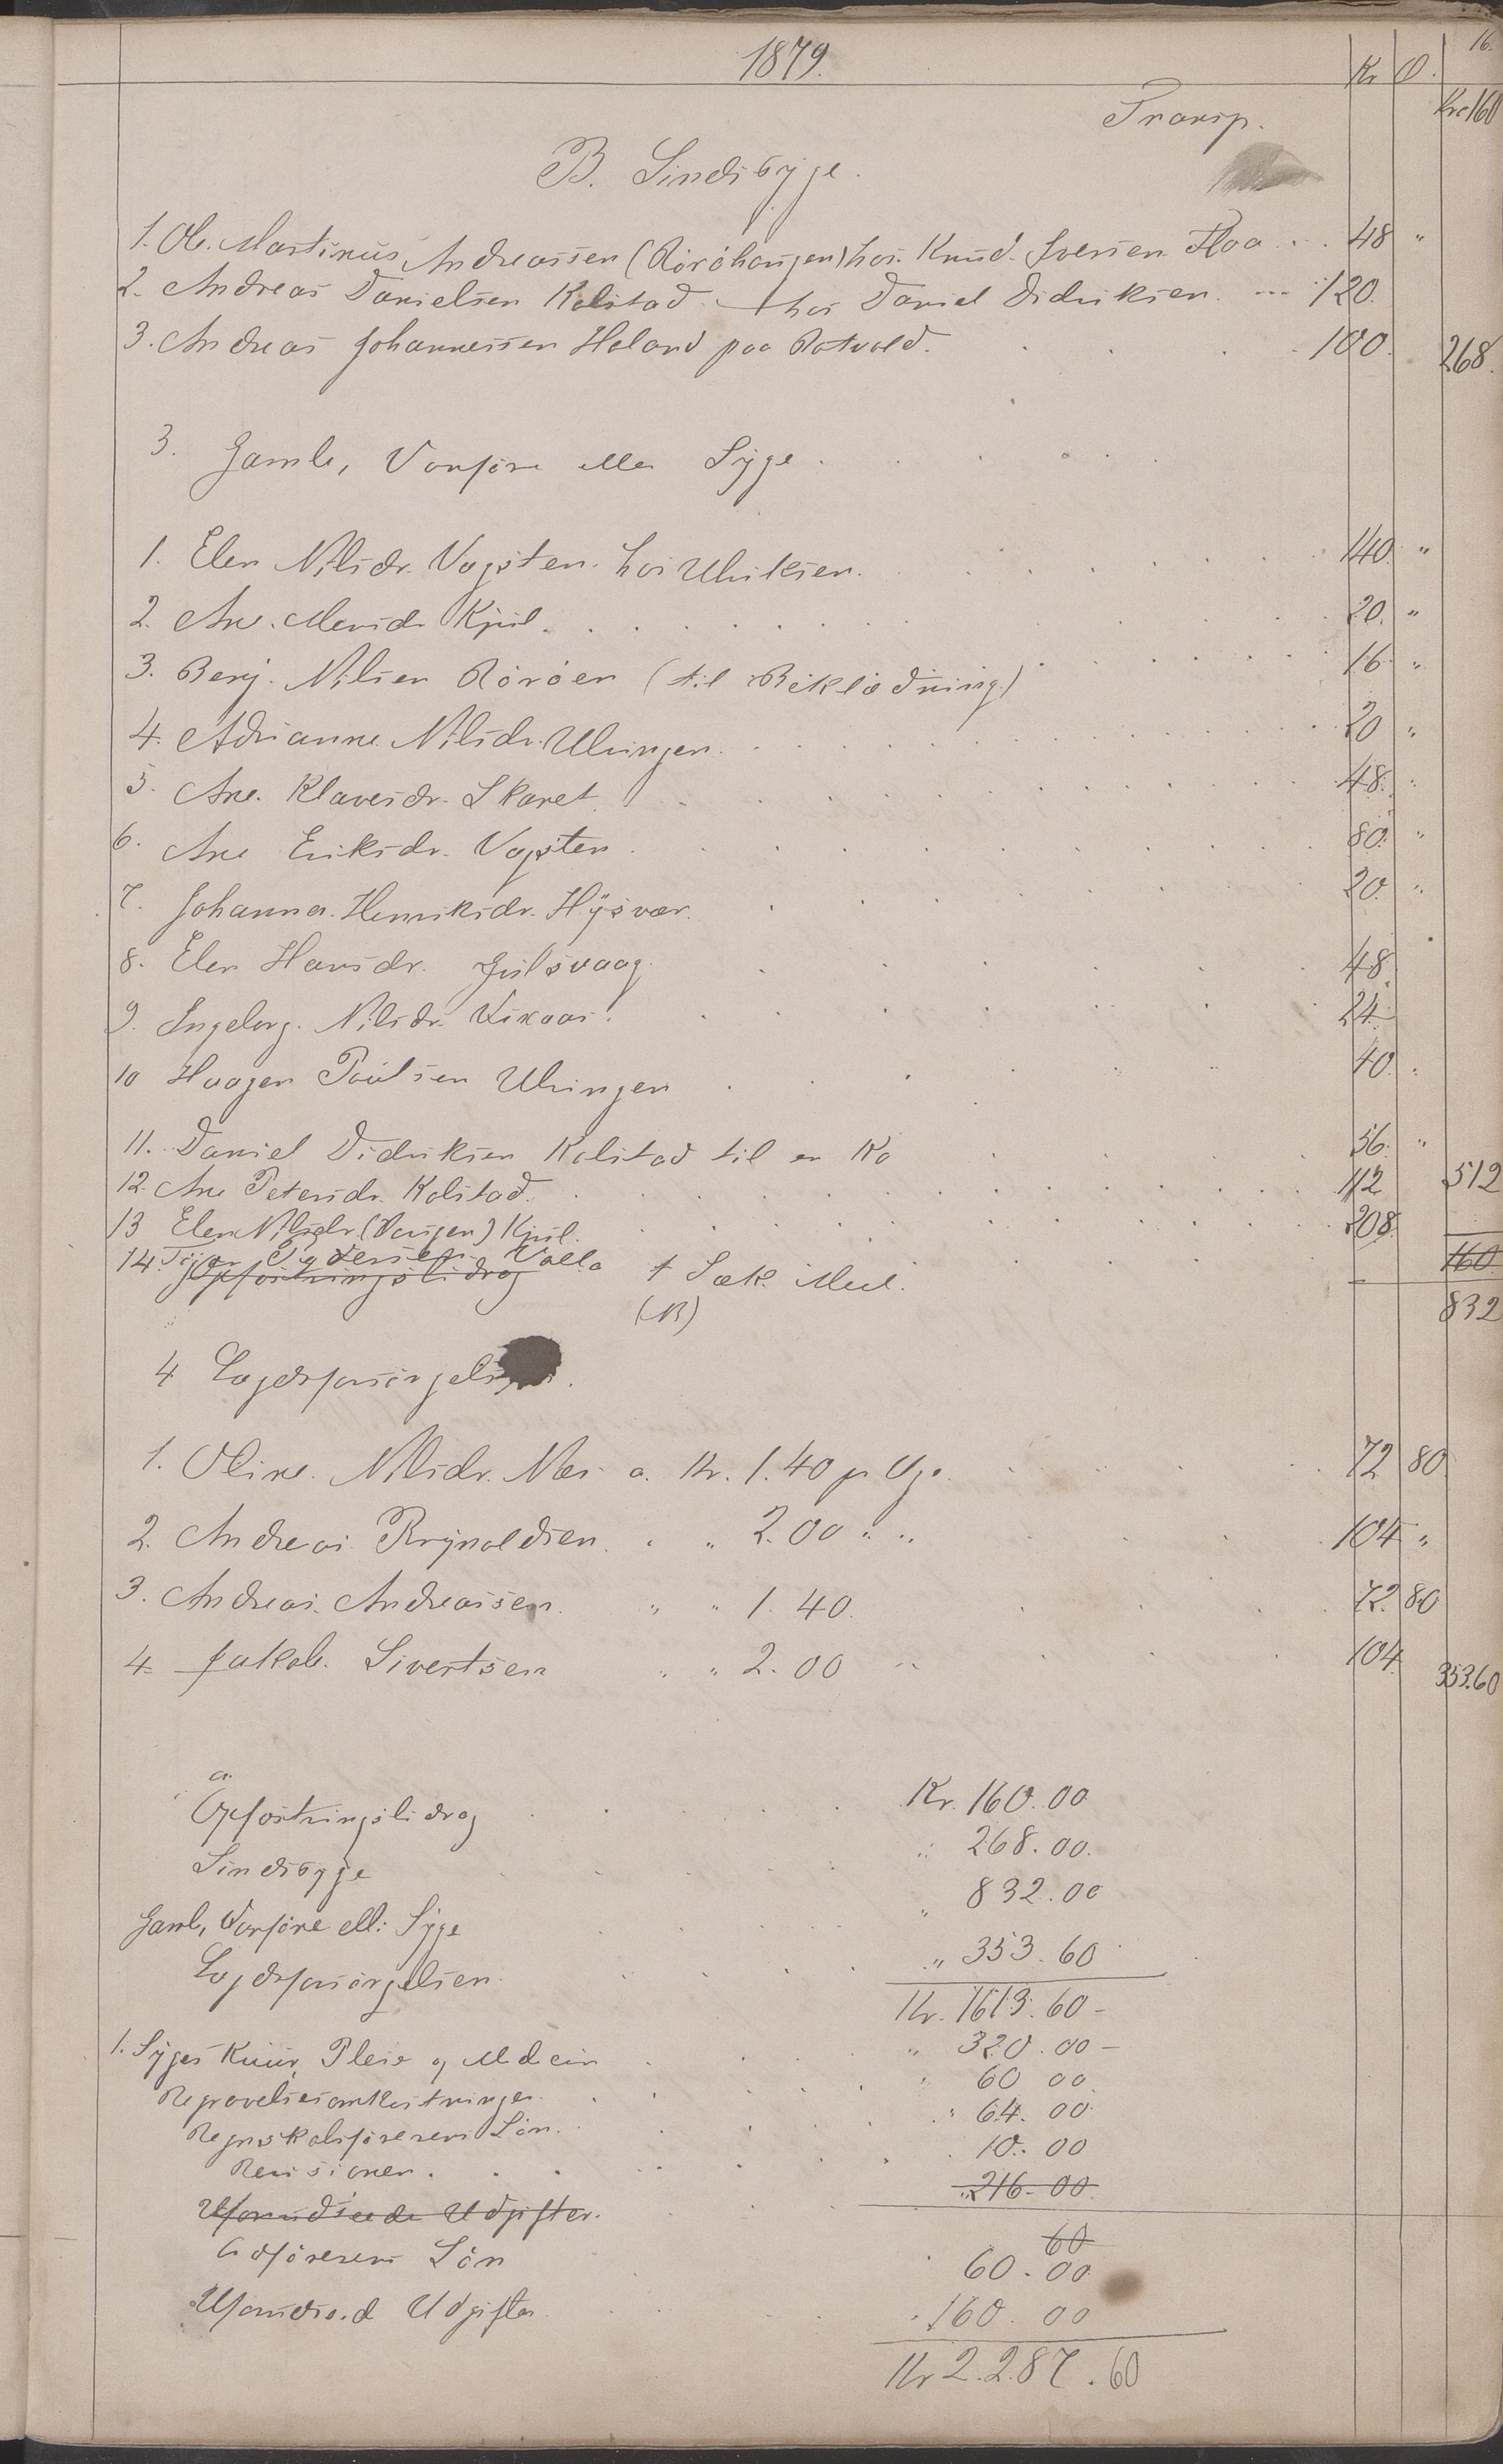 16.
1879.
Kr Ø.
Transp. Kr 160
B. Sindssyge.
1. Ol. Martinus Andreassen (Röröhaugen) hos Knud Iversen Floa ... 48 "
2. Andreas Danielsen Kolstad hos Daniel Didriksen. ... 120.
3. Andreas Johannessen Holand paa Rotvold. 100. 268.
3. Gamle, Vanføre eller Syge
1. Elen Nilsdr. Vagsten hos Ulriksen. 140. "
2. Ane Monsdr Kjul. 20. "
3. Benj. Nilsen Röröen (til Beklædning) 16. "
4. Adrianne Nilsdr. Ulvingen. 20 "
5. Ane Klavesdr. Skaret 48. "
6. Ane Eriksdr. Vagsten 80. "
7. Johanna Henriksdr. Hysvær. 20. "
8. Elen Hansdr. Gulsvaag. 48.
9. Ingeborg Nilsdr. Vikaas. 24.
10 Haagen Paulsen Ulvingen 40. "
11. Daniel Didriksen Kolstad til en Ko 56. "
12. Ane Petersdr. Kolstad. 112 512
13 Elen Nilsdr. (Vangen) Kjul. 208
14. Pedersen Valla 1 Sæk Meel. 160
Opfostringsbidrag
832
4 Lægdsforsørgelsen.
1. Oline Nilsdr. Næs a Kr. 1.40 pr Uge. 72 80
2. Andreas Brynoldsen " " 2.00 " " 104 "
3. Andreas Andreassen " " 1.40. 72. 80
4. Jakob Sivertsen " " 2.00 104. 353.60
a.
Opfostringsbidrag Kr. 160.00
Sindssyge " 268.00.
Gaml, Vanføre ell: Syge " 832.00
Lægdsforsørgelsen. " 353.60
Kr. 1613.60 -
1. Syges Kuur, Pleie og Medicin " 320.00 -
Begravelsesomkostninger. " 60 00
Regnskabsførerens Løn. " 64.00
Revisionen. 10.00
Uforudseede Udgifter. " 216-00
60
Ordførerens Løn 60.00
Uforudse.d Udgifter 160.00
Kr 2.287.60